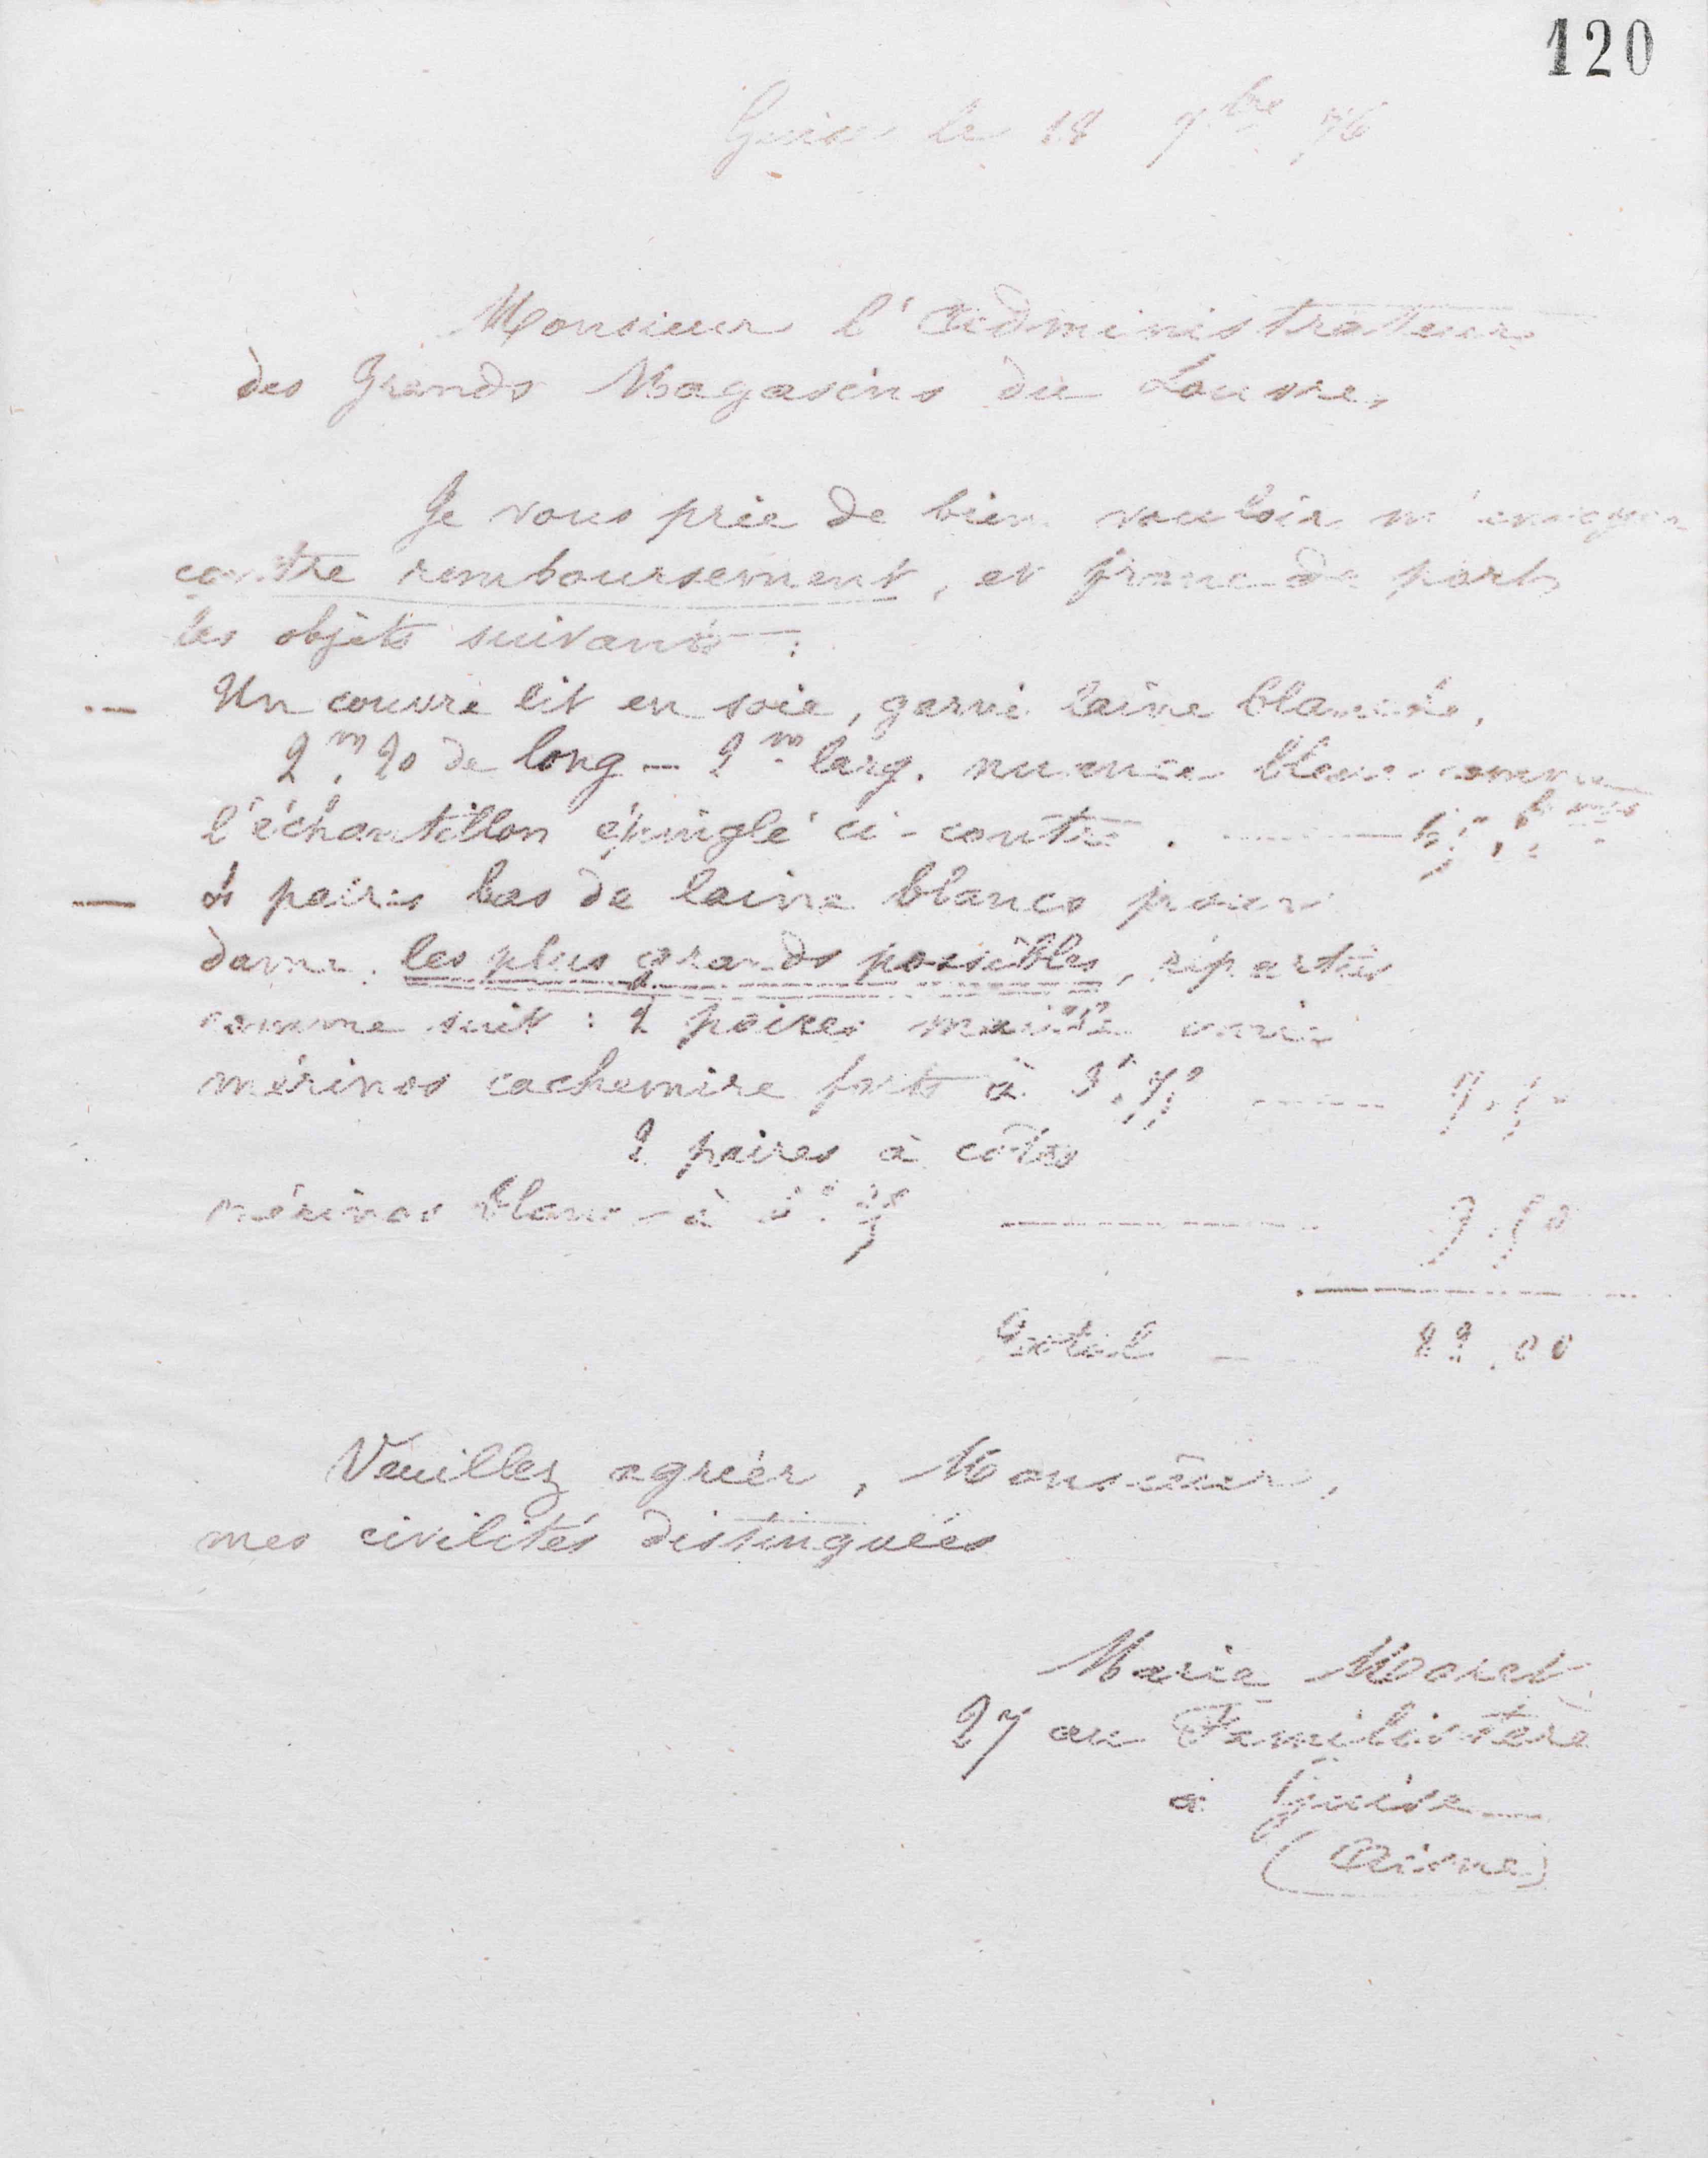 120
Guise le 18 7bre 76
Monsieur l'Administrateur
des Grands Magasins du Louvre,
Je vous prie de bien vouloir m'envoyer
contre remboursement, et franc de port,
les objets suivants :
— Un couvre lit en soie, garni laine blanche,
2m,20 de long — 2m larg. nuance bleue comme
l'échantillon épinglé ci-contre.
— paires bas de laine blancs pour
dame, les plus grands possibles, répartis
comme suit : 2 paires maille unie
mérinos cachemire forts à
2 paires à côtes
mérinos blanc à
Total
Veuillez agréer, Monsieur,
mes civilités distinguées
Marie Moret
27 au Familistère
à Guise
(Aisne)